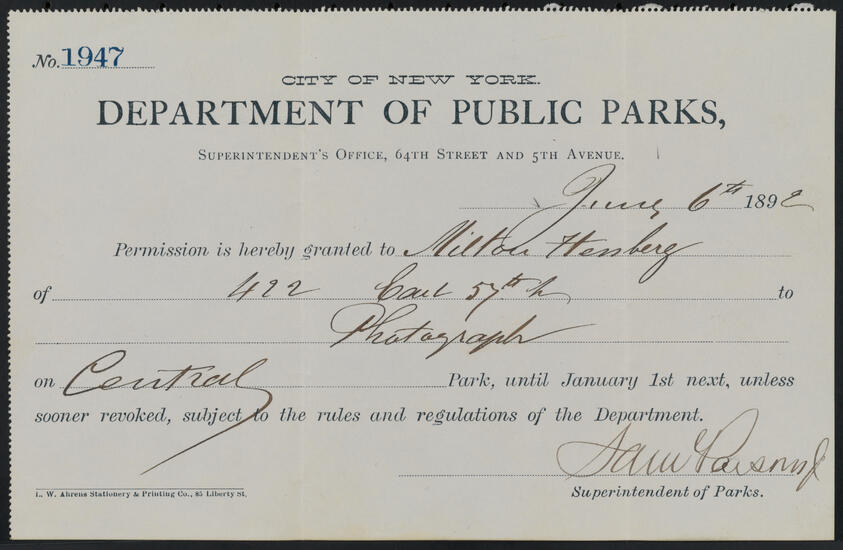 No. 1947
CITY OF NEW YORK.
DEPARTMENT OF PUBLIC PARKS,
SUPERINTENDENT'S OFFICE, 64TH STREET AND 5TH AVENUE.
June 6th 1892
Permission is hereby granted to Milton Hessberg
of 422 East 57th St to
Photograph
on Central Park, until January 1st next, unless
sooner revoked, subject to the rules and regulations of the Department.
Saml Parsons Jr
Superintendent of Parks.
L. W. Ahrens Stationery & Printing Co., 85 Liberty St.